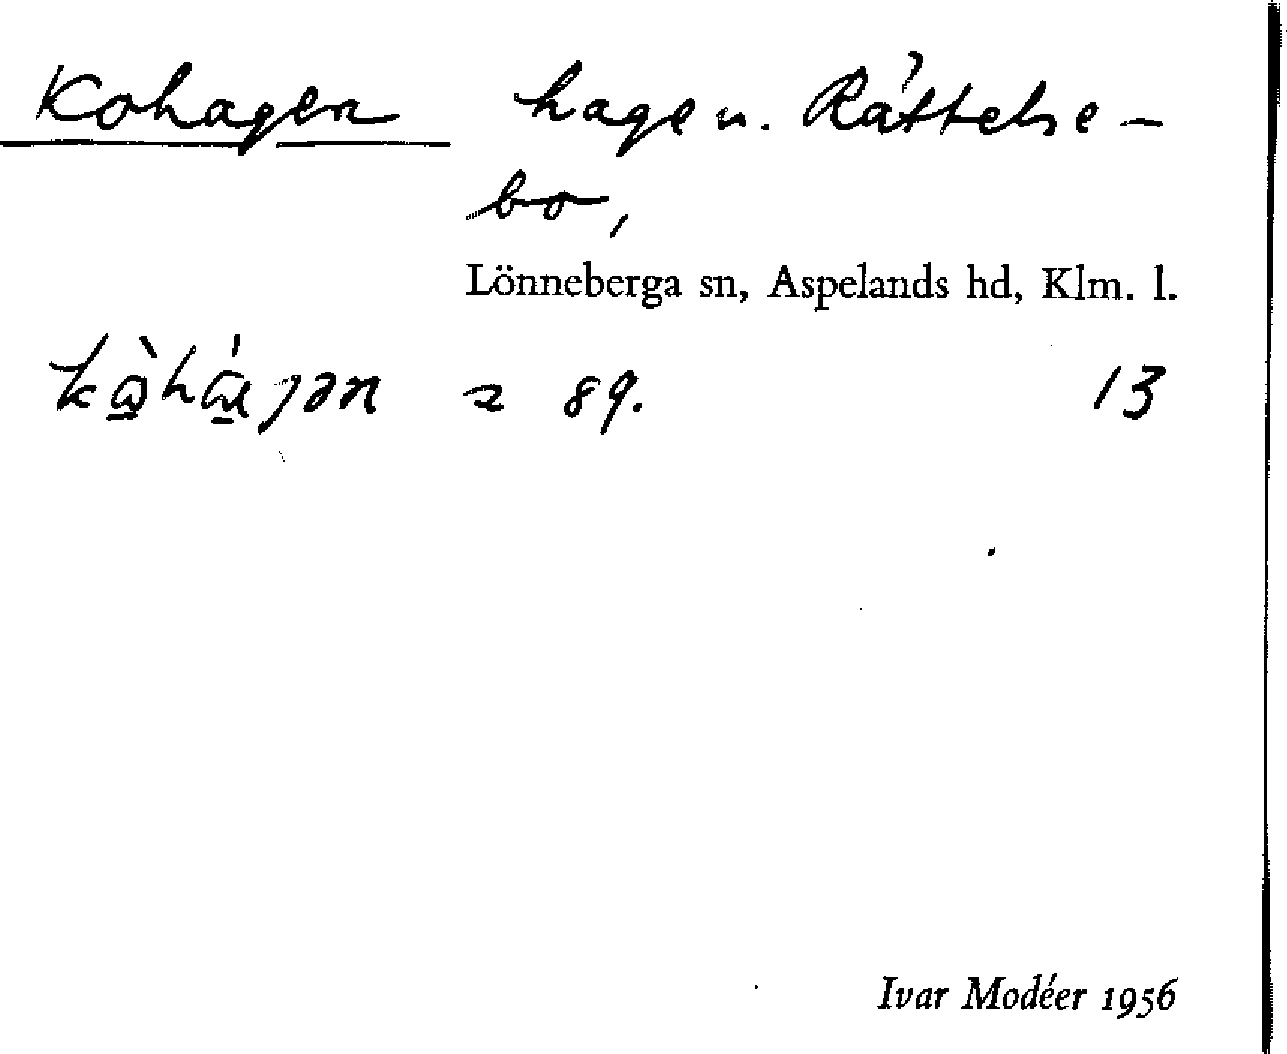 Kohagen hage u. Råttelse-
bo,
Lönneberga sn, Aspelands hd, Klm. l.
2 89. 13
Ivar Modéer 1956